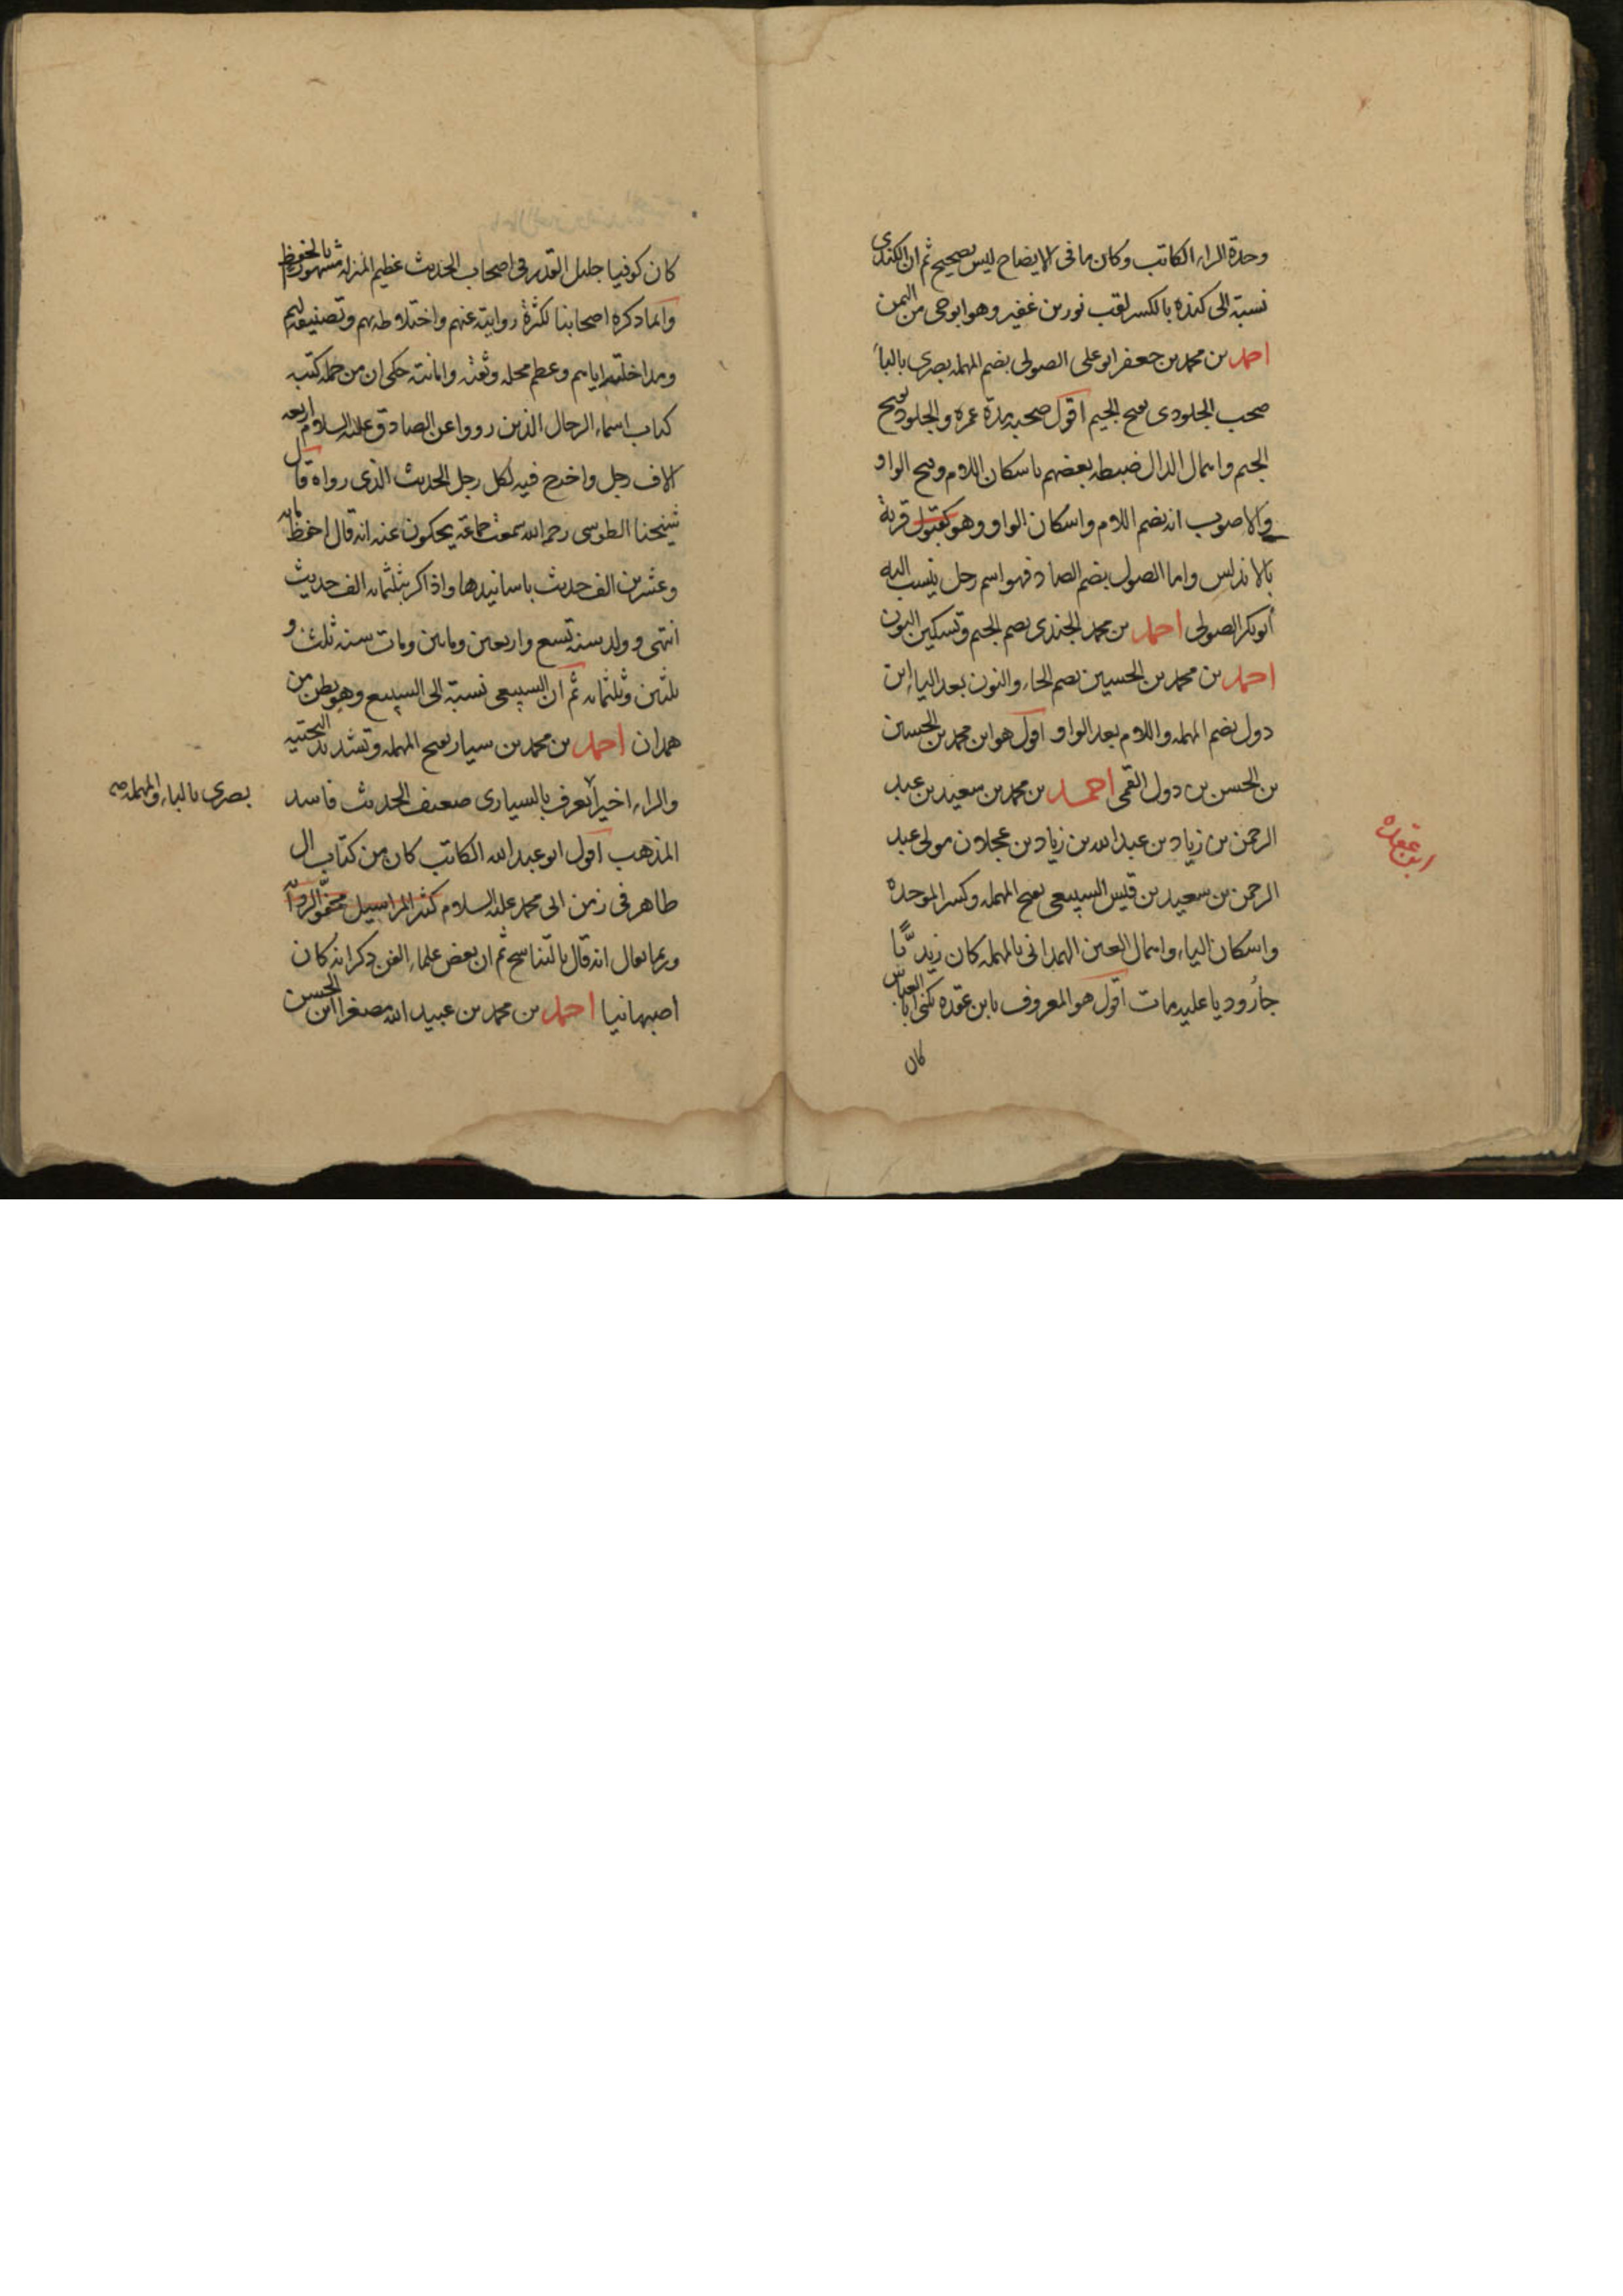 وحدة الراء الكاتب وكان ما فى الايضاح ليس بصحيح ثم ان الكندى
نسبة الى كنده بالكسر لقب ثور بن عفير وهو ابو حى من اليمن
احمد بن محمد بن جعفر ابو على الصولى بضم المهمله بصرى بالباء
صحب الجلودى بفتح الجيم اقول صحبه مدة عمره والجلود بفتح
الجيم واهمال الدال ضبطه بعضهم باسكان اللام وفتح الواو
والاصوب انه بضم اللام واسكان الواو وهو كقبول قرية
بالاندلس واما الصول بضم الصاد فهو اسم رجل ينسب اليه
ابو بكر الصولى احمد بن محمد الجندى بضم الجيم وتسكين النون
احمد بن محمد بن الحسين بضم الحاء والنون بعد الياء ابن
دول بضم المهمله واللام بعد الواو اقول هو ابن محمد بن الحسين
بن الحسن بن دول القمى احمد بن محمد بن سعيد بن عبد
الرحمن بن زياد بن عبد الله بن زياد بن عجلان مولى عبد
الرحمن بن سعيد بن قيس السبيعى بفتح المهمله وكسر الموحده
واسكان الياء واهمال العين الهمدانى بالمهمله كان زيديّا
جاروديا عليه مات اقول هو المعروف بابن عقده يكنى ابا العباس
كان
ابن عقده
كان كوفيا جليل القدر فى اصحاب الحديث عظيم المنزله مشهور بالحفظ
وانما ذكره اصحابنا لكثرة روايته عنهم واختلاطه بهم وتصنيفه لهم
ومداخلته اياهم وعظم محله وثقته وامانته حكى ان من جمله كتبه
كتاب اسماء الرجال الذين رووا عن الصادق عليه السلام اربعه
الاف رجل واخرج فيه لكل رجل الحديث الذى رواه قال
شيخنا الطوسى رحمه الله سمعت جماعة يحكون عنه انه قال احفظ مائه
وعشرين الف حديث باسانيدها واذاكر بثلثمائه الف حديث
انتهى وولد سنه تسع واربعين ومايتين ومات سنه ثلث و
ثلثين وثلثمائه ثم ان السبيعى نسبة الى السبيع وهو بطن من
همدان احمد بن محمد بن سيار بفتح المهمله وتشديد التحتيه
والراء اخيرا يعرف بالسيارى ضعيف الحديث فاسد
بصرى بالباء والمهمله صه
المذهب اقول ابو عبد الله الكاتب كان من كتاب ال
طاهر فى زمن ابى محمد عليه السلام كثير المراسيل مجفو الرواية
وربما يقال انه قال بالتناسخ ثم ان بعض علماء الفن ذكر انه كان
اصبهانيا احمد بن محمد بن عبيد الله مصغرا ابن الحسن